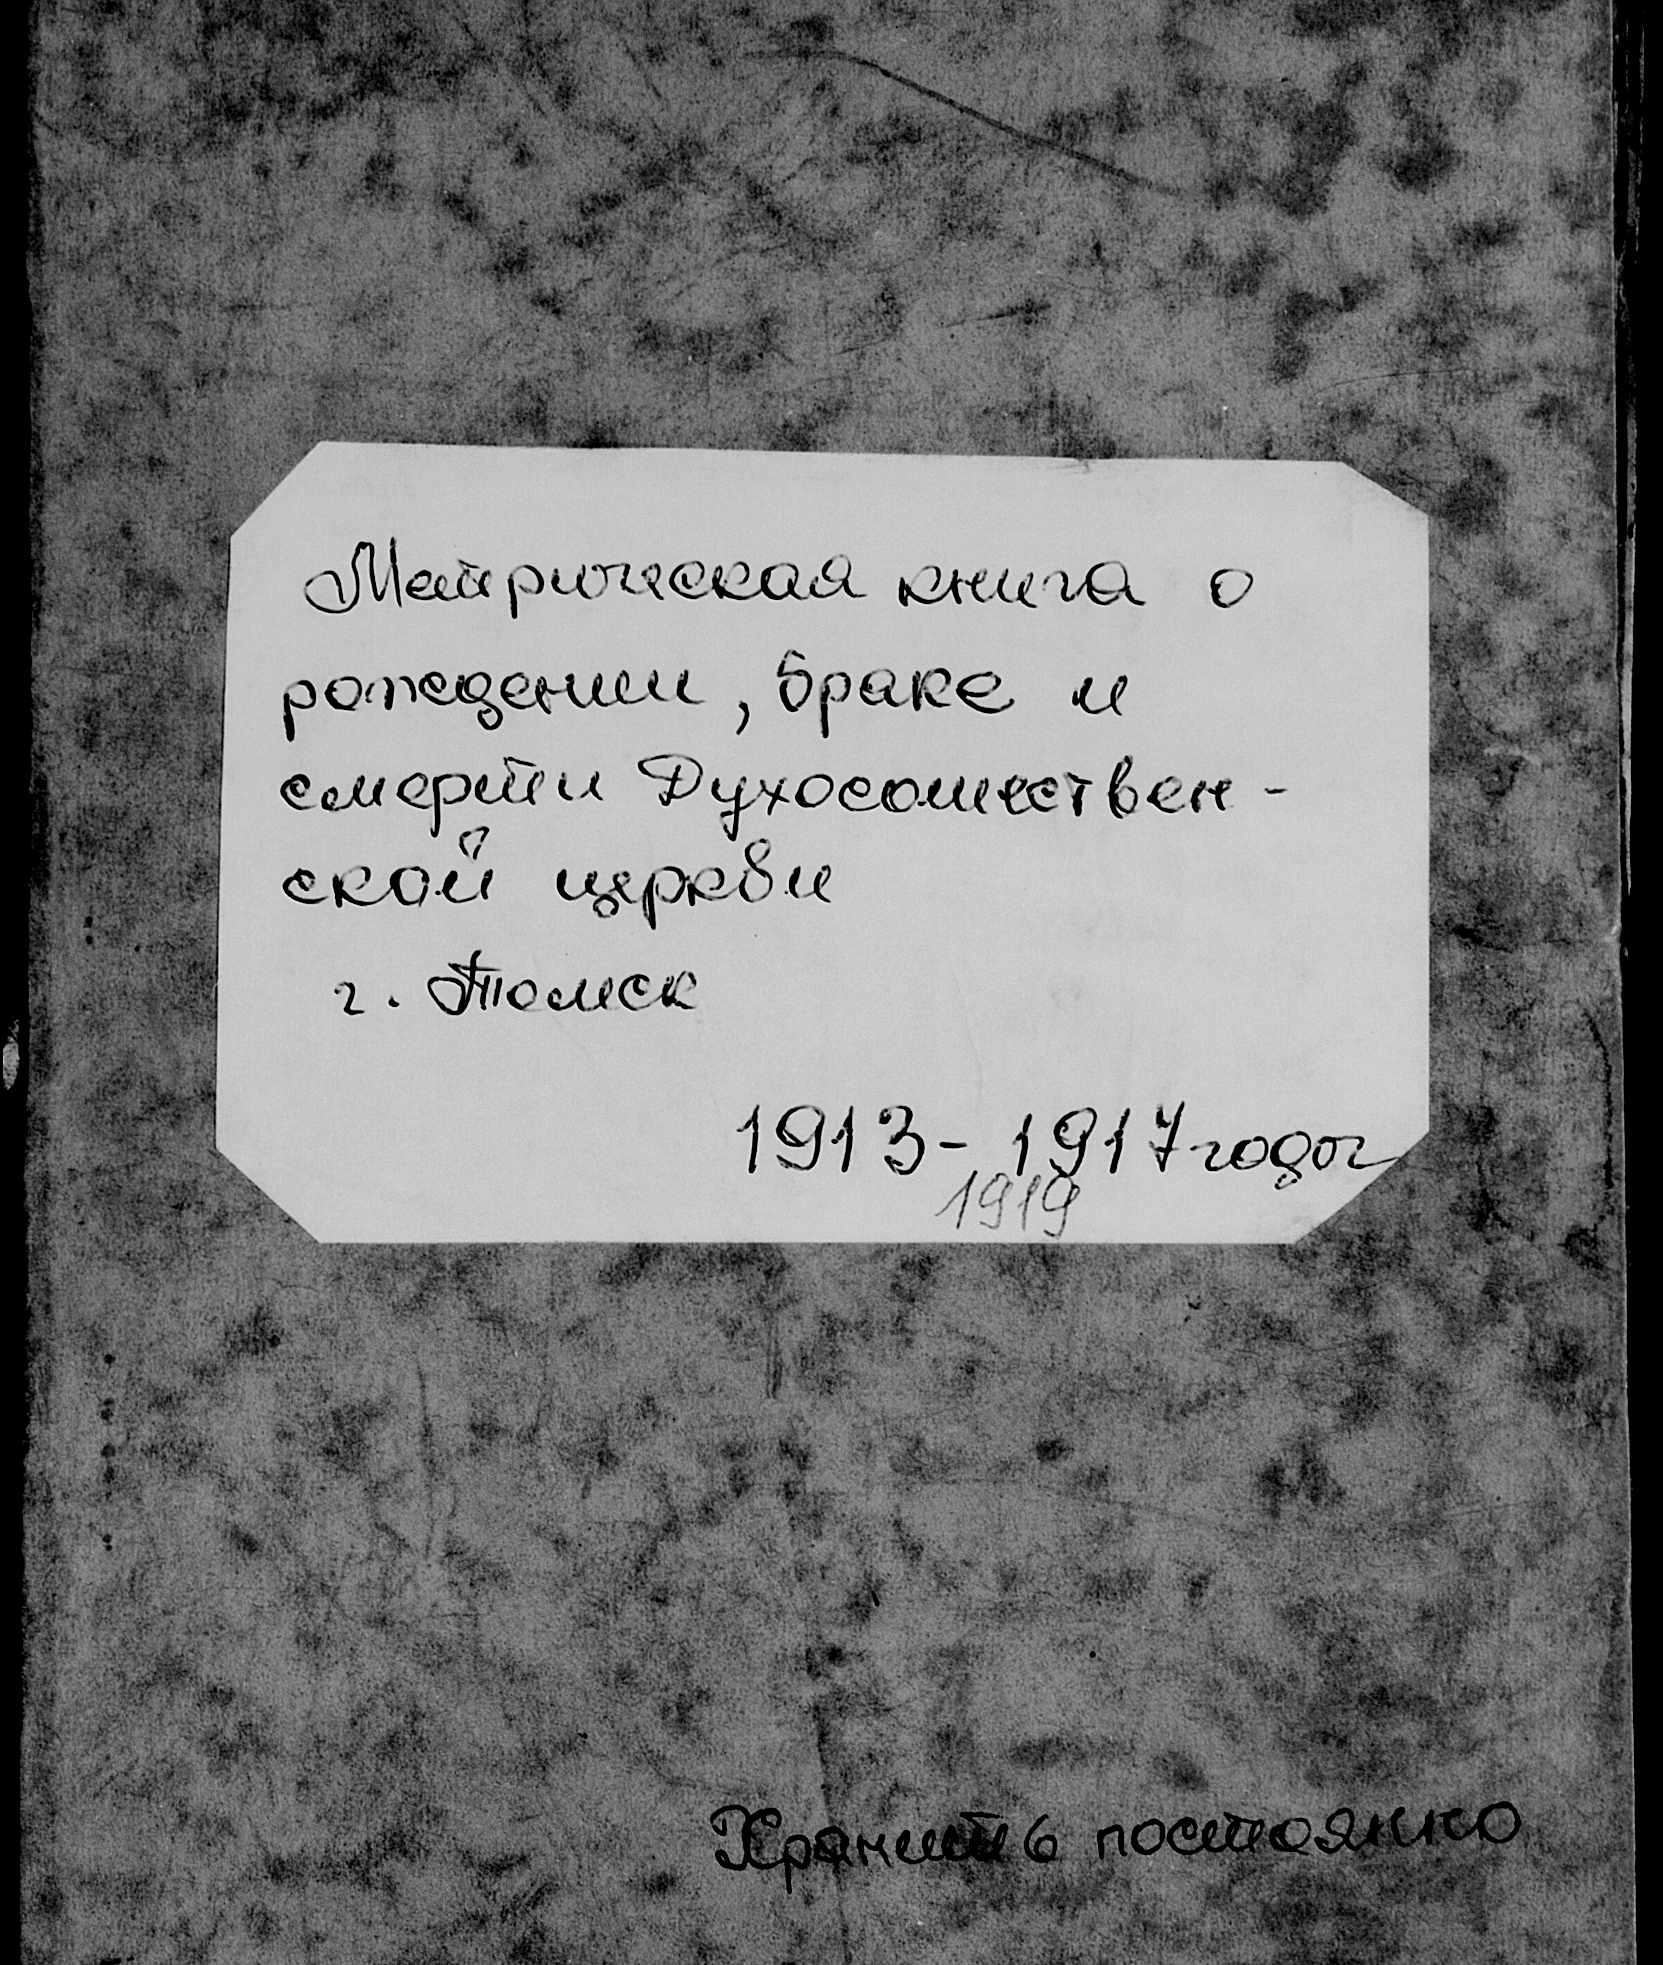 Метрическая книга о
рождении, браке и
смерти Духосошествен-
ской церкви
г. Томск
1913-1917 годы
1919
Хранить постоянно